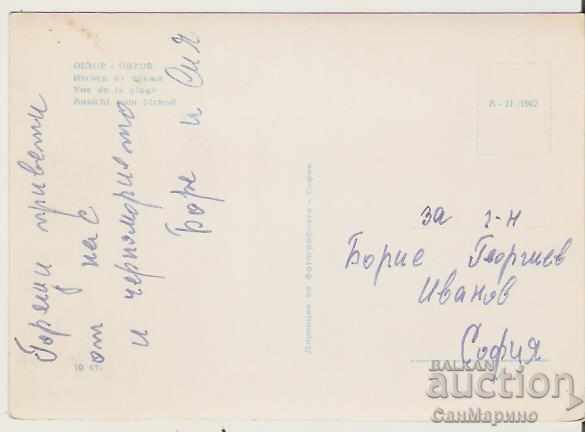 ОБЗОР – OBZOR
Изглед от плажа
Vue de la plage
Ansicht vom Strand
Горещи привети
от нас
и черноморието
Боре и Сия
Дирекция по Фотографията – София
10 ст.
за г-н
Борис Георгиев
Иванов
София
BALKAN
auction
СанМарино